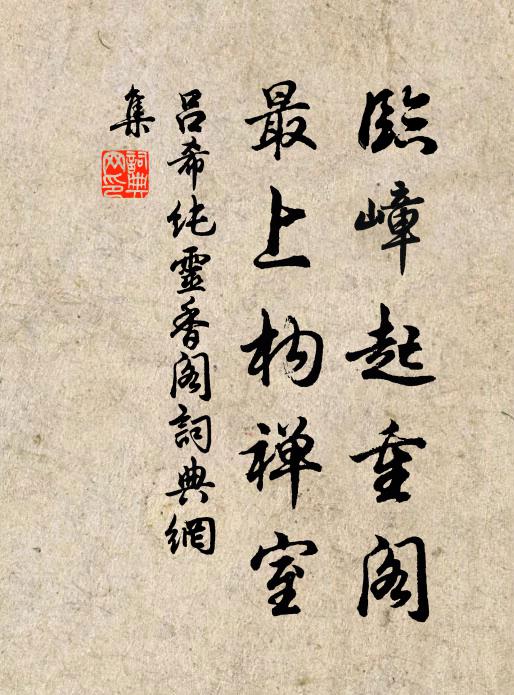 臨嶂起重阁
最上构禅室
吕希纯靈香阁詞典網
集
詞典网印